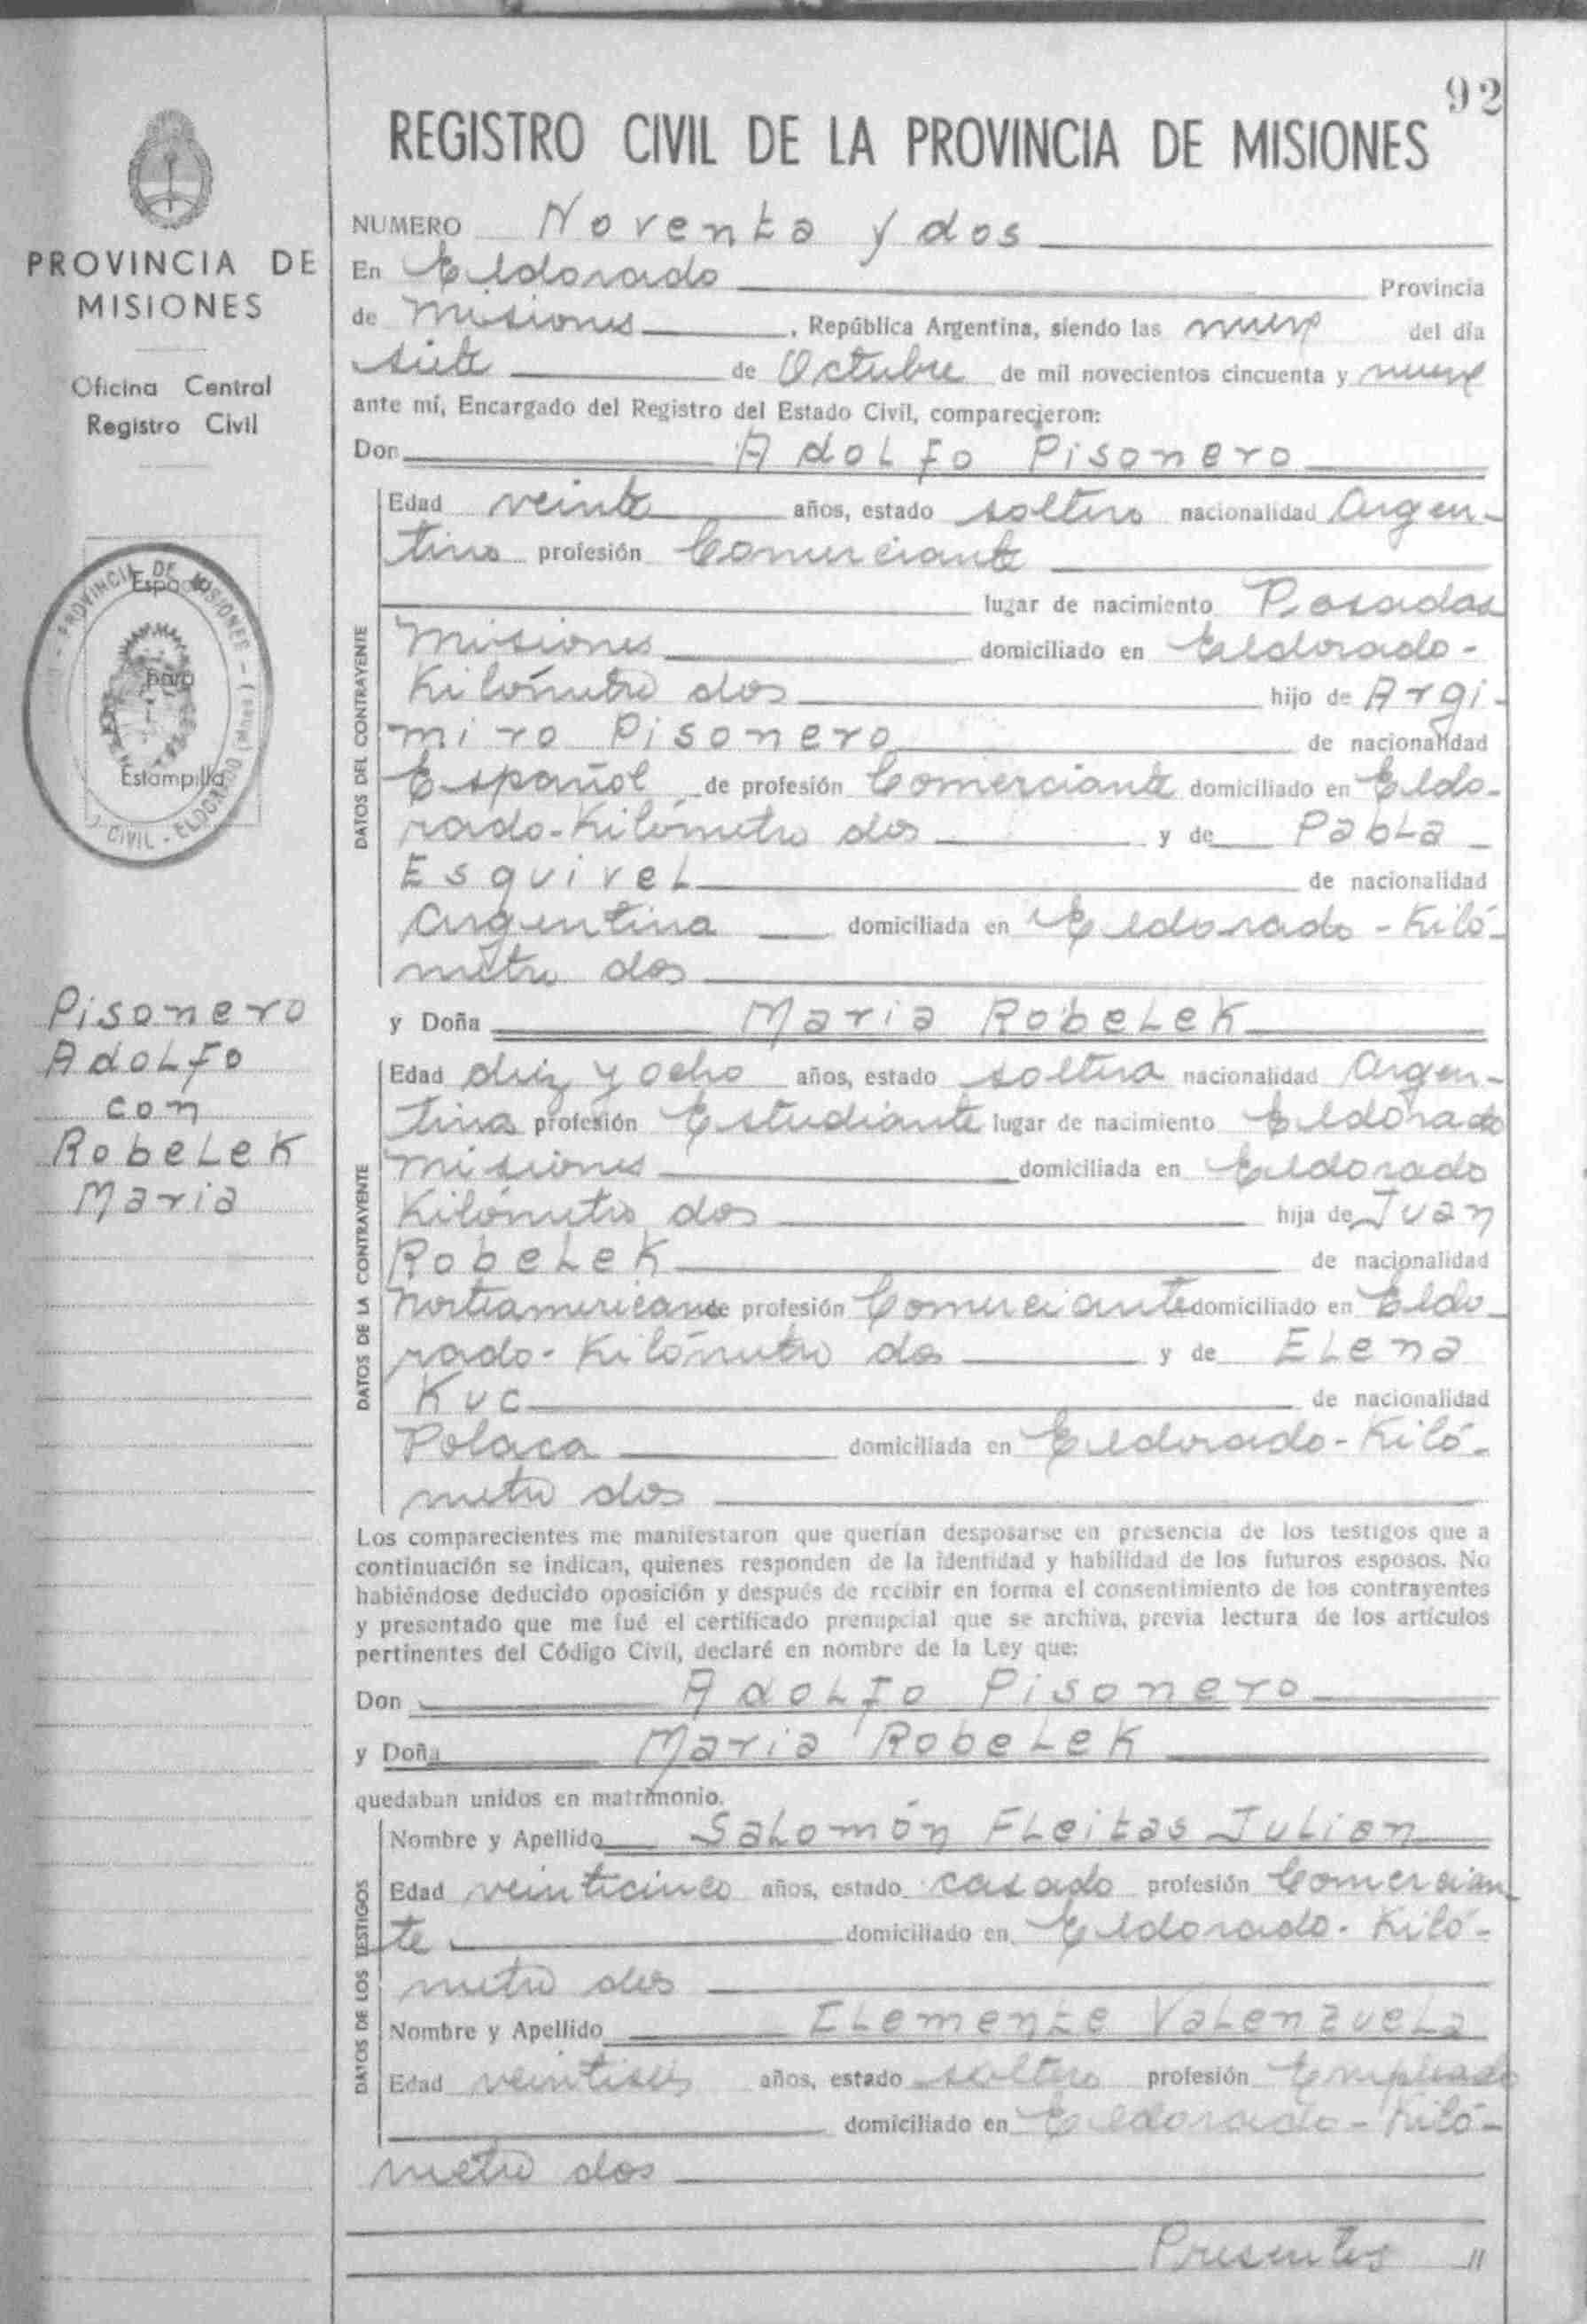 92
REGISTRO CIVIL DE LA PROVINCIA DE MISIONES
PROVINCIA DE
MISIONES
Oficina Central
Registro Civil
PROVINCIA DE MISIONES
CIVIL - ELDORADO (Mnes)
Espacio
para
Estampilla
Pisonero
Adolfo
con
Robelek
Maria
NUMERO Noventa y dos
En Eldorado Provincia
de Misiones, República Argentina, siendo las nueve del día
siete de Octubre de mil novecientos cincuenta y nueve
ante mí, Encargado del Registro del Estado Civil, comparecieron:
Don Adolfo Pisonero
DATOS DEL CONTRAYENTE
Edad veinte años, estado soltero nacionalidad Argen-
tino profesión Comerciante
lugar de nacimiento Posadas
Misiones domiciliado en Eldorado-
Kilómetro dos hijo de Argi-
miro Pisonero de nacionalidad
Español de profesión Comerciante domiciliado en Eldo-
rado-Kilómetro dos y de Pabla
Esquivel de nacionalidad
Argentina domiciliada en Eldorado-Kiló-
metro dos
y Doña Maria Robelek
DATOS DE LA CONTRAYENTE
Edad diez y ocho años, estado soltera nacionalidad Argen-
tina profesión Estudiante lugar de nacimiento Eldorado
Misiones domiciliada en Eldorado
Kilómetro dos hija de Juan
Robelek de nacionalidad
Norteamericano de profesión Comerciante domiciliado en Eldo-
rado-Kilómetro dos y de Elena
Kuc de nacionalidad
Polaca domiciliada en Eldorado-Kiló-
metro dos
Los comparecientes me manifestaron que querían desposarse en presencia de los testigos que a
continuación se indican, quienes responden de la identidad y habilidad de los futuros esposos. No
habiéndose deducido oposición y después de recibir en forma el consentimiento de los contrayentes
y presentado que me fué el certificado prenupcial que se archiva, previa lectura de los artículos
pertinentes del Código Civil, declaré en nombre de la Ley que:
Don Adolfo Pisonero
y Doña Maria Robelek
quedaban unidos en matrimonio.
DATOS DE LOS TESTIGOS
Nombre y Apellido Salomón Fleitas Julian
Edad veinticinco años, estado casado profesión Comercian
te domiciliado en Eldorado-Kiló-
metro dos
Nombre y Apellido Clemente Valenzuela
Edad veintiseis años, estado soltero profesión Empleado
domiciliado en Eldorado-Kiló-
metro dos
Presentes //